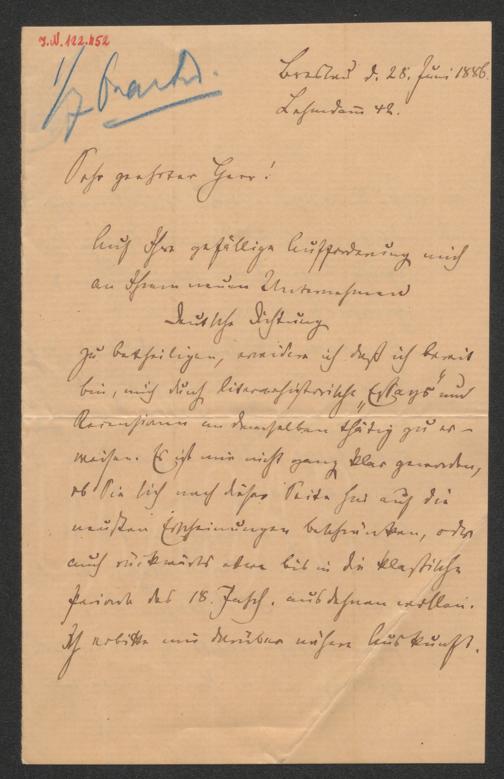 J.N. 122.452
1/7 beantw.
Breslau d. 28. Juni 1886.
Lehmdamm 42.
Sehr geehrter Herr!
Auf Ihre gefällige Aufforderung mich
an Ihrem neuen Unternehmen
Deutsche Dichtung
zu betheiligen, erwidere ich daß ich bereit
bin, mich durch literarhistorische „Essays“ und
Recensionen an demselben thätig zu er-
weisen. Es ist mir nicht ganz klar geworden,
ob Sie sich nach dieser Seite hin auf die
neusten Erscheinungen beschränken, oder
auch rückwärts etwa bis in die klassische
Periode des 18. Jahrh. ausdehnen wollen.
Ich erbitte mir darüber nähere Auskunft.